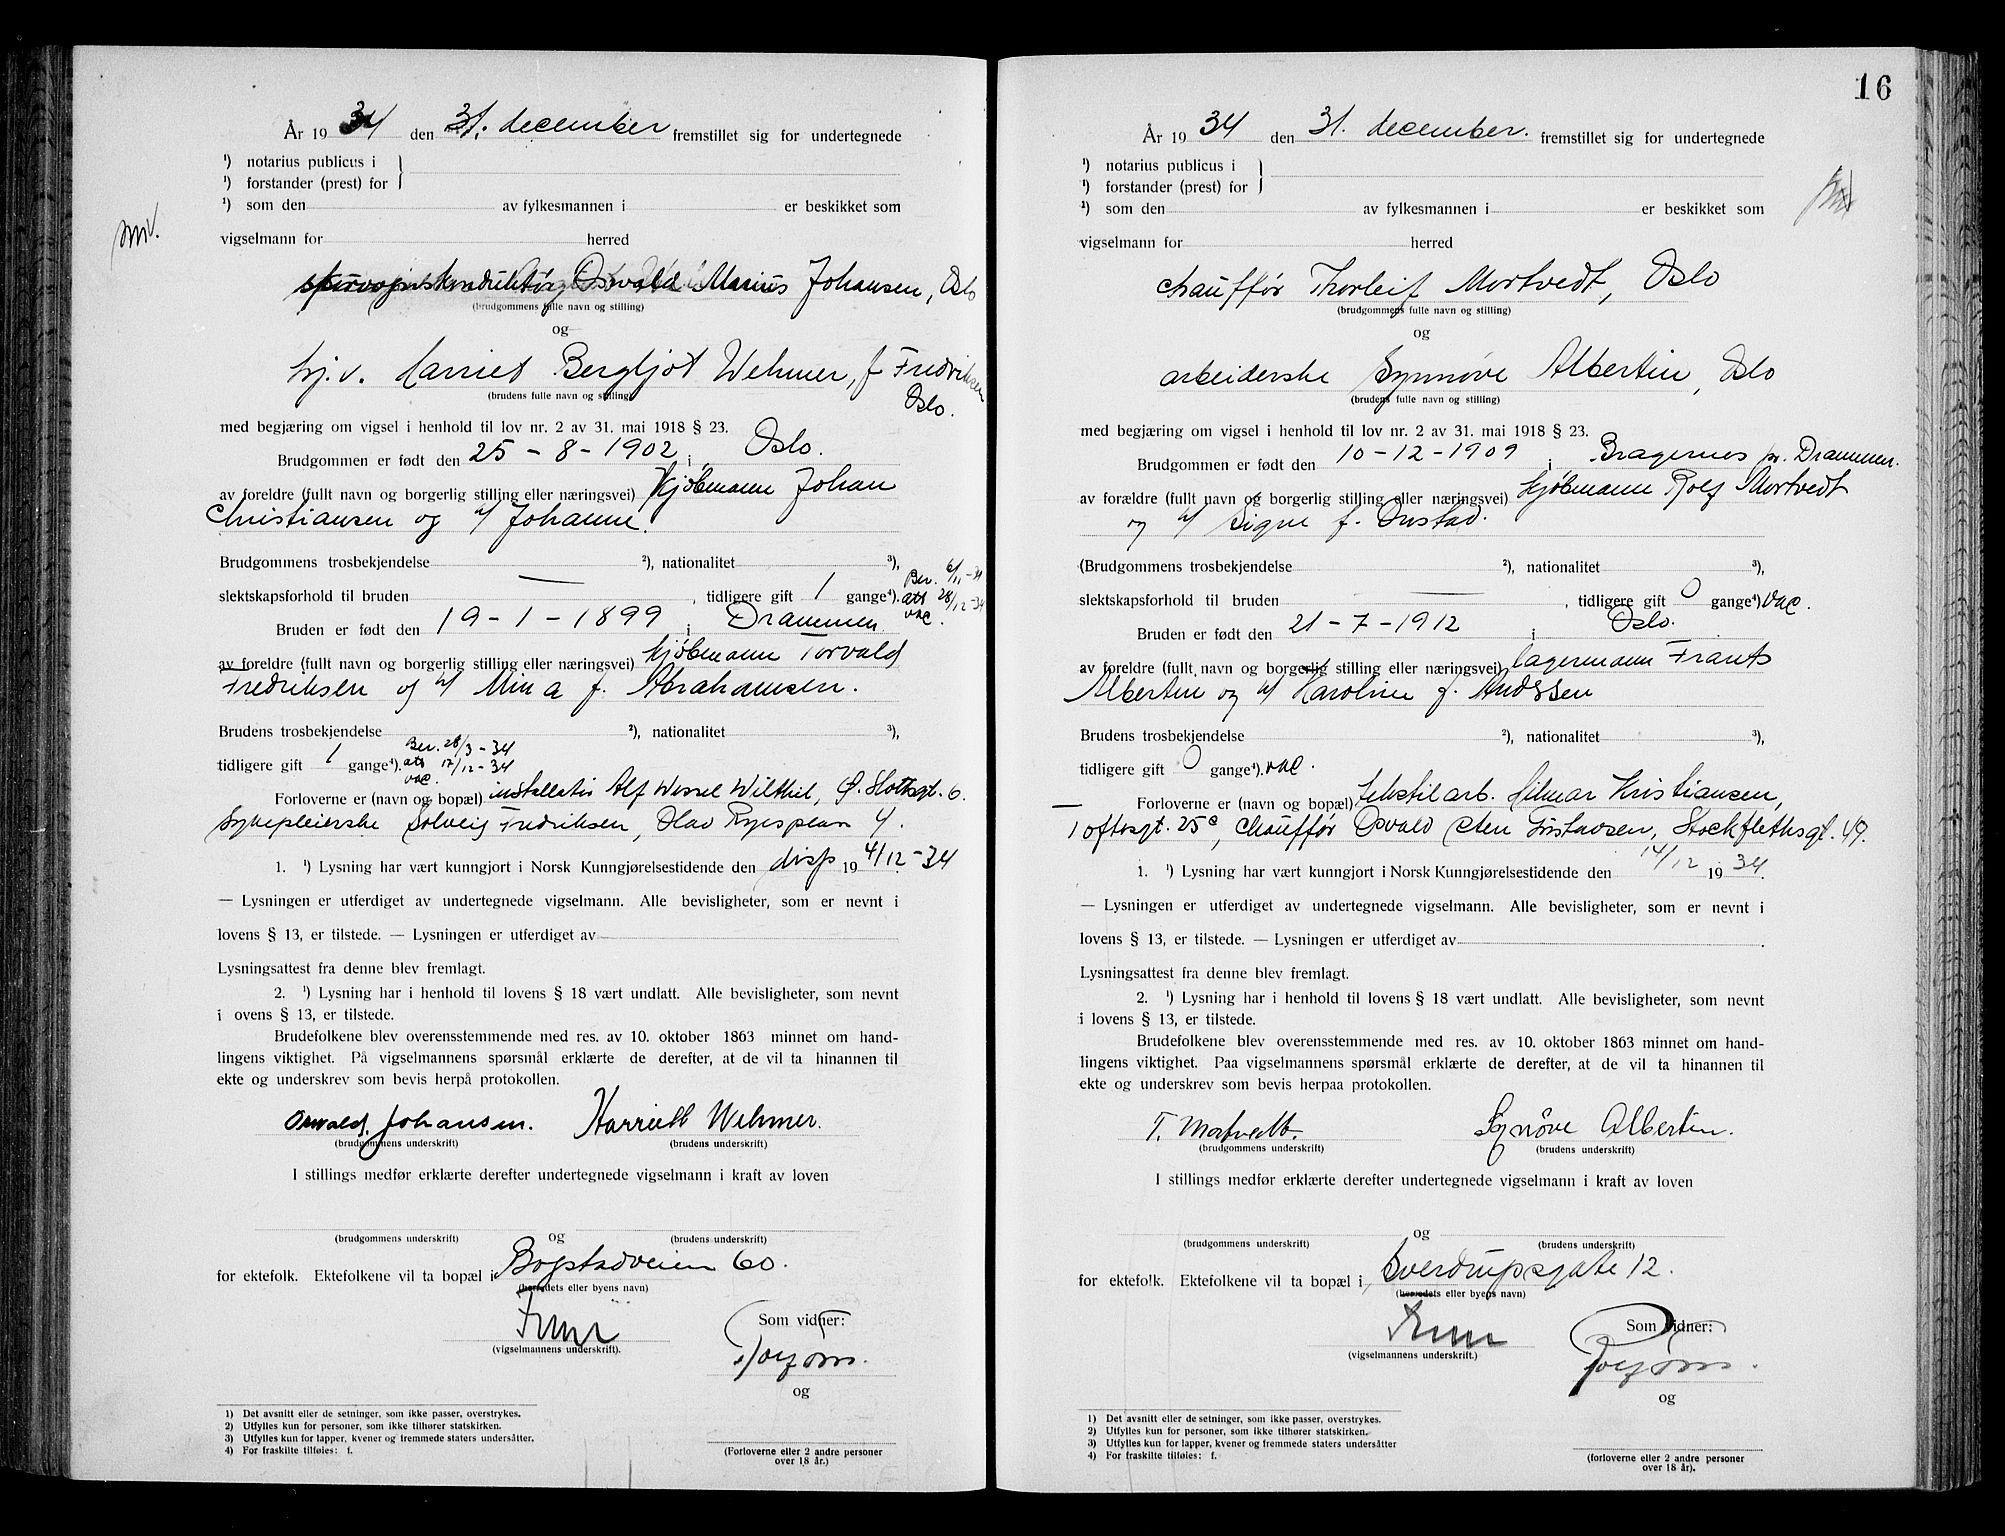 År 19 34 den 31. december fremstillet sig for undertegnede
¹) notarius publicus i
¹) forstander (prest) for
¹) som den av fylkesmannen i er beskikket som
vigselmann for herred
sporvognskonduktør Oswald Marius Johansen, Oslo
(brudgommens fulle navn og stilling)
og
hj.v. Harriet Bergljot Wehmer, f. Fredriksen
Oslo.
(brudens fulle navn og stilling)
med begjæring om vigsel i henhold til lov nr. 2 av 31. mai 1918 § 23.
Brudgommen er født den 25 - 8 - 1902 i Oslo.
av foreldre (fullt navn og borgerlig stilling eller næringsvei) kjøbmann Johan
Christiansen og h/ Johanne.
Brudgommens trosbekjendelse ²), nationalitet ³),
slektskapsforhold til bruden — , tidligere gift 1 gange⁴). Ber. 6/11-34 att 28/12-34 vac.
Bruden er født den 19 - 1 - 1899 i Drammen
av foreldre (fullt navn og borgerlig stilling eller næringsvei) kjøbmann Torvald
Fredriksen og h/ Mina f. Abrahamsen.
Brudens trosbekjendelse ²), nationalitet ³),
tidligere gift 1 gange⁴). Ber. 28/3-34 att 17/12-34 vac.
Forloverne er (navn og bopæl) installatør Alf Wessel Wilthil, Ø. Slottsgt. 6.
Sykepleierske Solveig Fredriksen, Olav Ryesplass 4.
1. ¹) Lysning har vært kunngjort i Norsk Kunngjørelsestidende den disp 19 4/12-34
— Lysningen er utferdiget av undertegnede vigselmann. Alle bevisligheter, som er nevnt i
lovens § 13, er tilstede. — Lysningen er utferdiget av
Lysningsattest fra denne blev fremlagt.
2. ¹) Lysning har i henhold til lovens § 18 vært undlatt. Alle bevisligheter, som nevnt
i ovens § 13, er tilstede.
Brudefolkene blev overensstemmende med res. av 10. oktober 1863 minnet om hand-
lingens viktighet. På vigselmannens spørsmål erklærte de derefter, at de vil ta hinannen til
ekte og underskrev som bevis herpå protokollen.
Oswald Johansen. Harriett Wehmer.
(brudgommens underskrift) (brudens underskrift)
I stillings medfør erklærte derefter undertegnede vigselmann i kraft av loven
og
(brudgommens underskrift) (brudens underskrift)
for ektefolk. Ektefolkene vil ta bopæl i Bogstadveien 60.
(herredets eller byens navn)
Som vidner:
(vigselmannens underskrift).
og
1) Det avsnitt eller de setninger, som ikke passer, overstrykes.
2) Utfylles kun for personer, som ikke tilhører statskirken.
3) Utfylles kun for lapper, kvener og fremmede staters undersåtter.
4) For fraskilte tilføies: f.
(Forloverne eller 2 andre personer
over 18 år.)
16
År 19 34 den 31. december. fremstillet sig for undertegnede
¹) notarius publicus i
¹) forstander (prest) for
²) som den av fylkesmannen i er beskikket som
vigselmann for herred
chauffør Thorleif Mortvedt, Oslo
(brudgommens fulle navn og stilling)
og
arbeiderske Synnøve Albertin, Oslo
(brudens fulle navn og stilling)
med begjæring om vigsel i henhold til lov nr. 2 av 31. mai 1918 § 23.
Brudgommen er født den 10-12-1909 i Bragernes pr. Drammen.
av forældre (fullt navn og borgerlig stilling eller næringsvei) kjøbmann Rolf Mortvedt
og h/ Signe f. Onstad.
(Brudgommens trosbekjendelse ²), nationalitet ³),
slektskapsforhold til bruden — , tidligere gift 0 gange⁴) vac.
Bruden er født den 21 - 7 - 1912 i Oslo.
av foreldre (fullt navn og borgerlig stilling eller næringsvei) lagermann Frants
Albertin og h/ Karoline f. Anderssen
Brudens trosbekjendelse ²), nationalitet ³),
tidligere gift 0 gange⁴). vac.
Forloverne er (navn og bopæl) tekstilarb. Hilmar Kristiansen,
Toftesgt. 25c, chauffør Osvald Sten Gustavsen, Stockflethsgt. 49.
1. ¹) Lysning har vært kunngjort i Norsk Kunngjørelsestidende den 14/12 19 34.
— Lysningen er utferdiget av undertegnede vigselmann. Alle bevisligheter, som er nevnt i
lovens § 13, er tilstede. — Lysningen er utferdiget av .
Lysningsattest fra denne blev fremlagt.
2. ¹) Lysning har i henhold til lovens § 18 vært undlatt. Alle bevisligheter, som nevnt
i lovens § 13, er tilstede.
Brudefolkene blev overensstemmende med res. av 10. oktober 1863 minnet om hand-
lingens viktighet. Paa vigselmannens spørsmål erklærte de derefter, at de vil ta hinannen til
ekte og underskrev som bevis herpaa protokollen.
T. Mortvedt. Synøve Albertin.
(brudgommens underskrift) (brudens underskrift)
I stillings medfør erklærte derefter undertegnede vigselmann i kraft av loven
og
(brudgommens underskrift) (brudens underskrift)
for ektefolk. Ektefolkene vil ta bopæl i Sverdrupsgate 12.
(herredets eller byens navn)
Som vidner:
(vigselmannens underskrift.)
og
1) Det avsnitt eller de setninger, som ikke passer, overstrykes.
2) Utfylles kun for personer, som ikke tilhører statskirken.
3) Utfylles kun for lapper, kvener og fremmede staters undersåtter
4) For fraskilte tilføies: f.
(forloverne eller 2 andre personer
over 18 år).